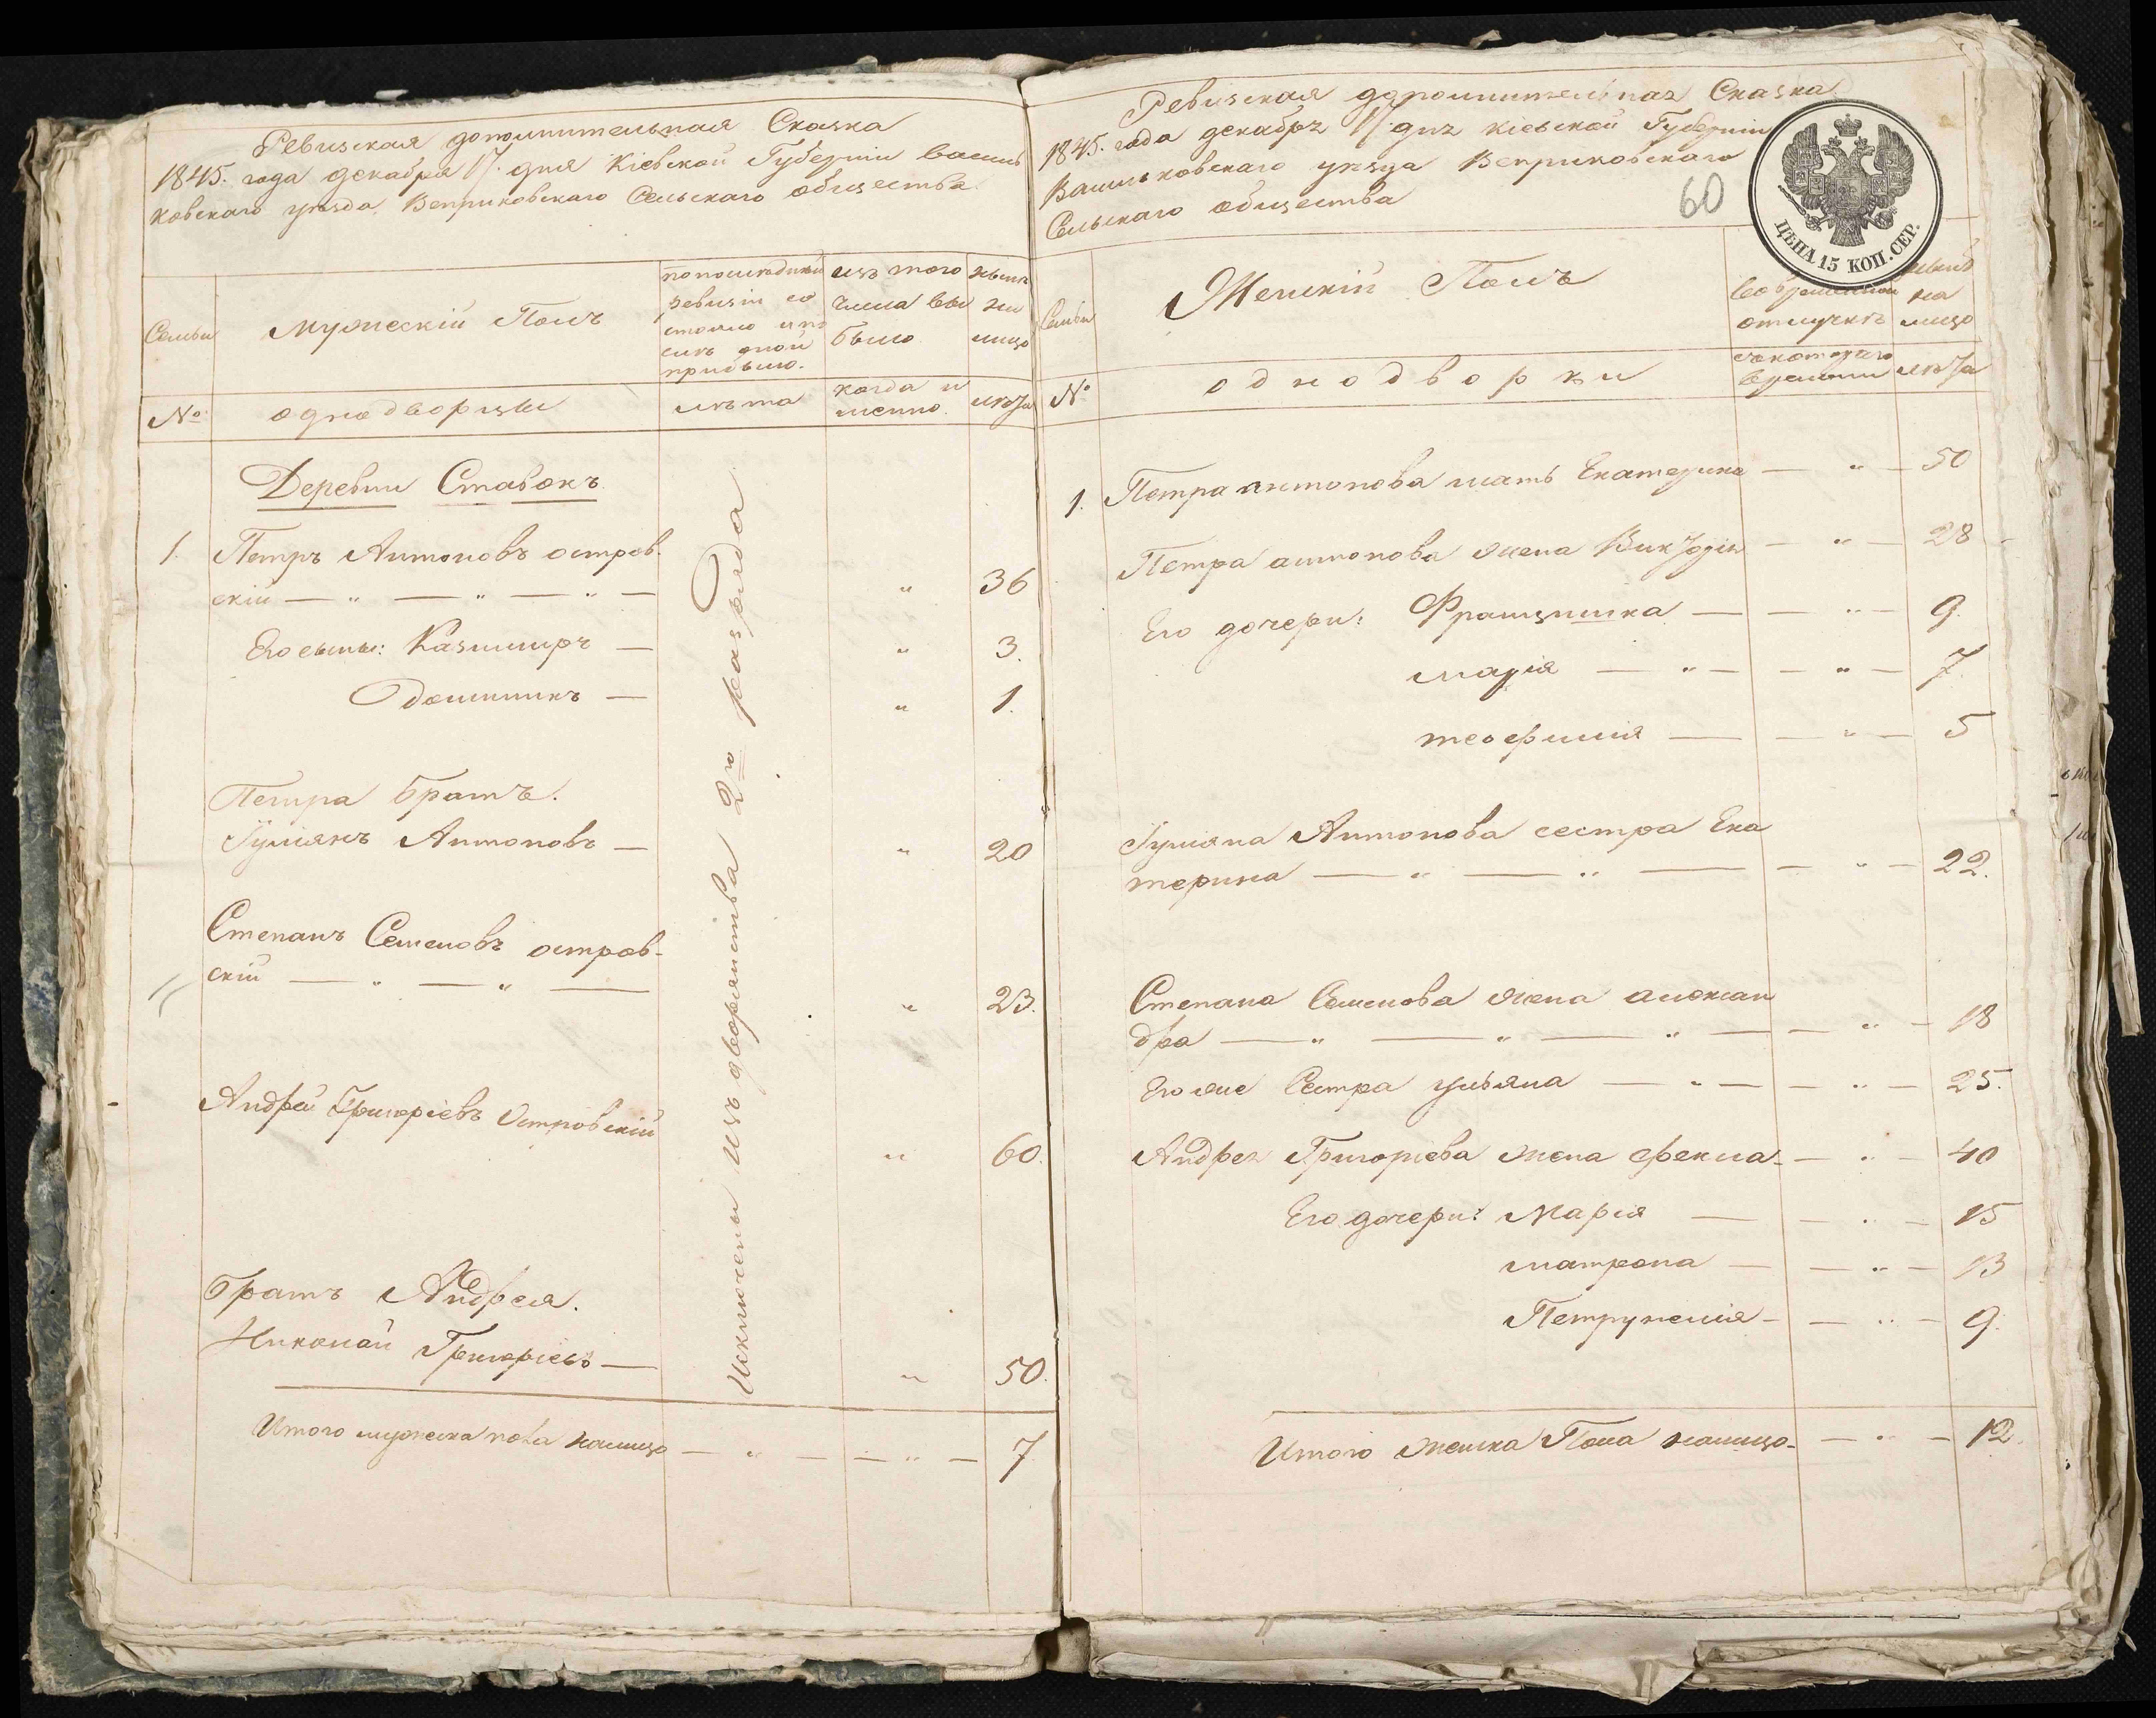 Ревизская дополнительная Сказка
1845. года декабря 17. дня Кіевской Губерніи Василь
ковскаго уѣзда Веприковскаго Сельскаго общества.
Семьи
Мужескій Полъ
по последней
ревизіи со
стояло и по
слѣ оной
прибыло.
изъ того
числа вы
было
нынѣ
на
лицо
№
однодворцы
лѣта
когда и
менно.
лѣта
Деревни Ставокъ
1. Петръ Антоновъ остров-
скій — " — " — " — " 36
Его сыны: Казимиръ — " 3.
Доминикъ — " 1.
Петра братъ.
Іуліянъ Антоновъ — " 20
Степанъ Семеновъ остров-
скій — " — " — " 23.
Андрей Григоріевъ Островскій " 60.
братъ Андрея.
Николай Григоріевъ — " 50.
Исключены изъ дворянства 2го разряда
Итого мужеска пола налицо — " — — " — 7
Ревизская дополнительная Сказка
1845. года декабря 17 дня Кіевской Губерніи
Васильковскаго уѣзда Веприковскаго
Сельскаго общества
60
ЦѢНА 15 КОП. СЕР.
Семьи
Женскій Полъ
во временной
отлучкѣ
на
лицо
№
однодворки
съ котораго
времени
лѣта
1. Петра Антонова мать Екатерина — " — 50
Петра Антонова жена Викторія — " — 28
Его дочери: Францишка — — " — 9.
Марія — " — — " — 7.
теофилія — — " — 5
Іуліяна Антонова сестра Ека
терина — " — " — — " — 22.
Степана Семенова жена алексан
дра — " — " — " — — " — 18
Его же Сестра ульяна — " — — " — 25.
Андрея Григоріева жена фекла — — " — 40
Его дочери: Марія — — " — 15
матрона — — " — 13
Петрунелія — — " — 9.
Итого женска Пола налицо — — " — 12.